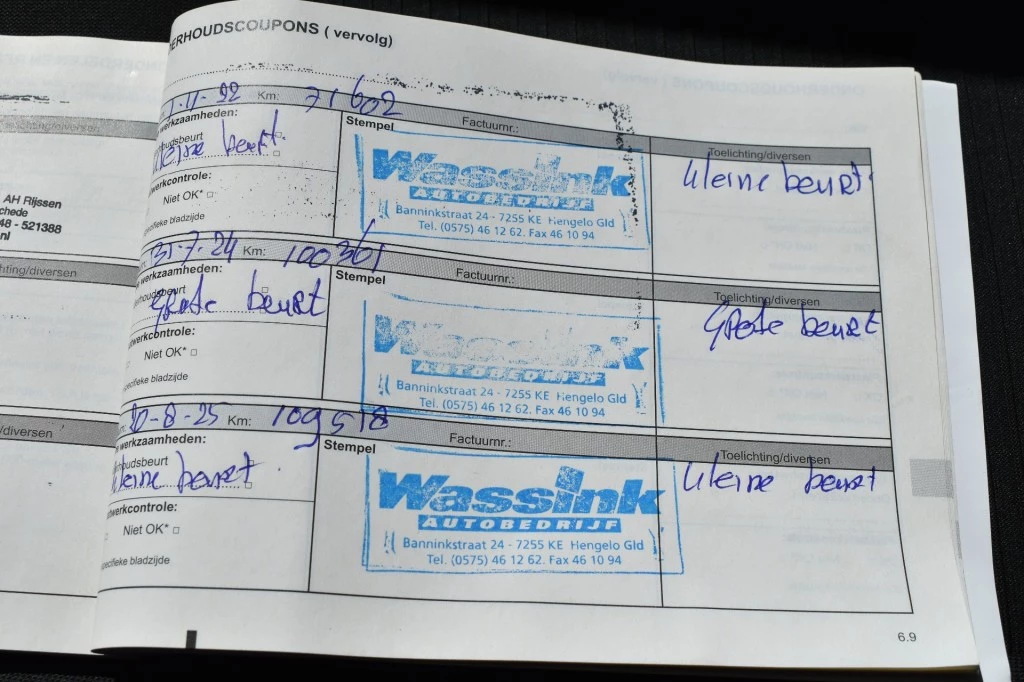 ERHOUDSCOUPONS ( vervolg)
1-11-22 Km: 71602
werkzaamheden:
houdsbeurt
kleine beurt.
werkcontrole:
Niet OK* □
ecifieke bladzijde
Stempel
Factuurnr.:
Wassink
AUTOBEDRIJF
Banninkstraat 24 - 7255 KE Hengelo Gld
Tel. (0575) 46 12 62. Fax 46 10 94
Toelichting/diversen
kleine beurt.
31-7-24 Km: 100361
werkzaamheden:
houdsbeurt
Grote beurt
werkcontrole:
Niet OK* □
pecifieke bladzijde
Stempel
Factuurnr.:
Wassink
AUTOBEDRIJF
Banninkstraat 24 - 7255 KE Hengelo Gld
Tel. (0575) 46 12 62. Fax 46 10 94
Toelichting/diversen
Grote beurt
20-8-25 Km: 109518
werkzaamheden:
houdsbeurt
kleine beurt.
werkcontrole:
Niet OK* □
pecifieke bladzijde
Stempel
Factuurnr.:
Wassink
AUTOBEDRIJF
Banninkstraat 24 - 7255 KE Hengelo Gld
Tel. (0575) 46 12 62. Fax 46 10 94
Toelichting/diversen
kleine beurt
6.9
AH Rijssen
chede
48 - 521388
nl
hting/diversen
/diversen